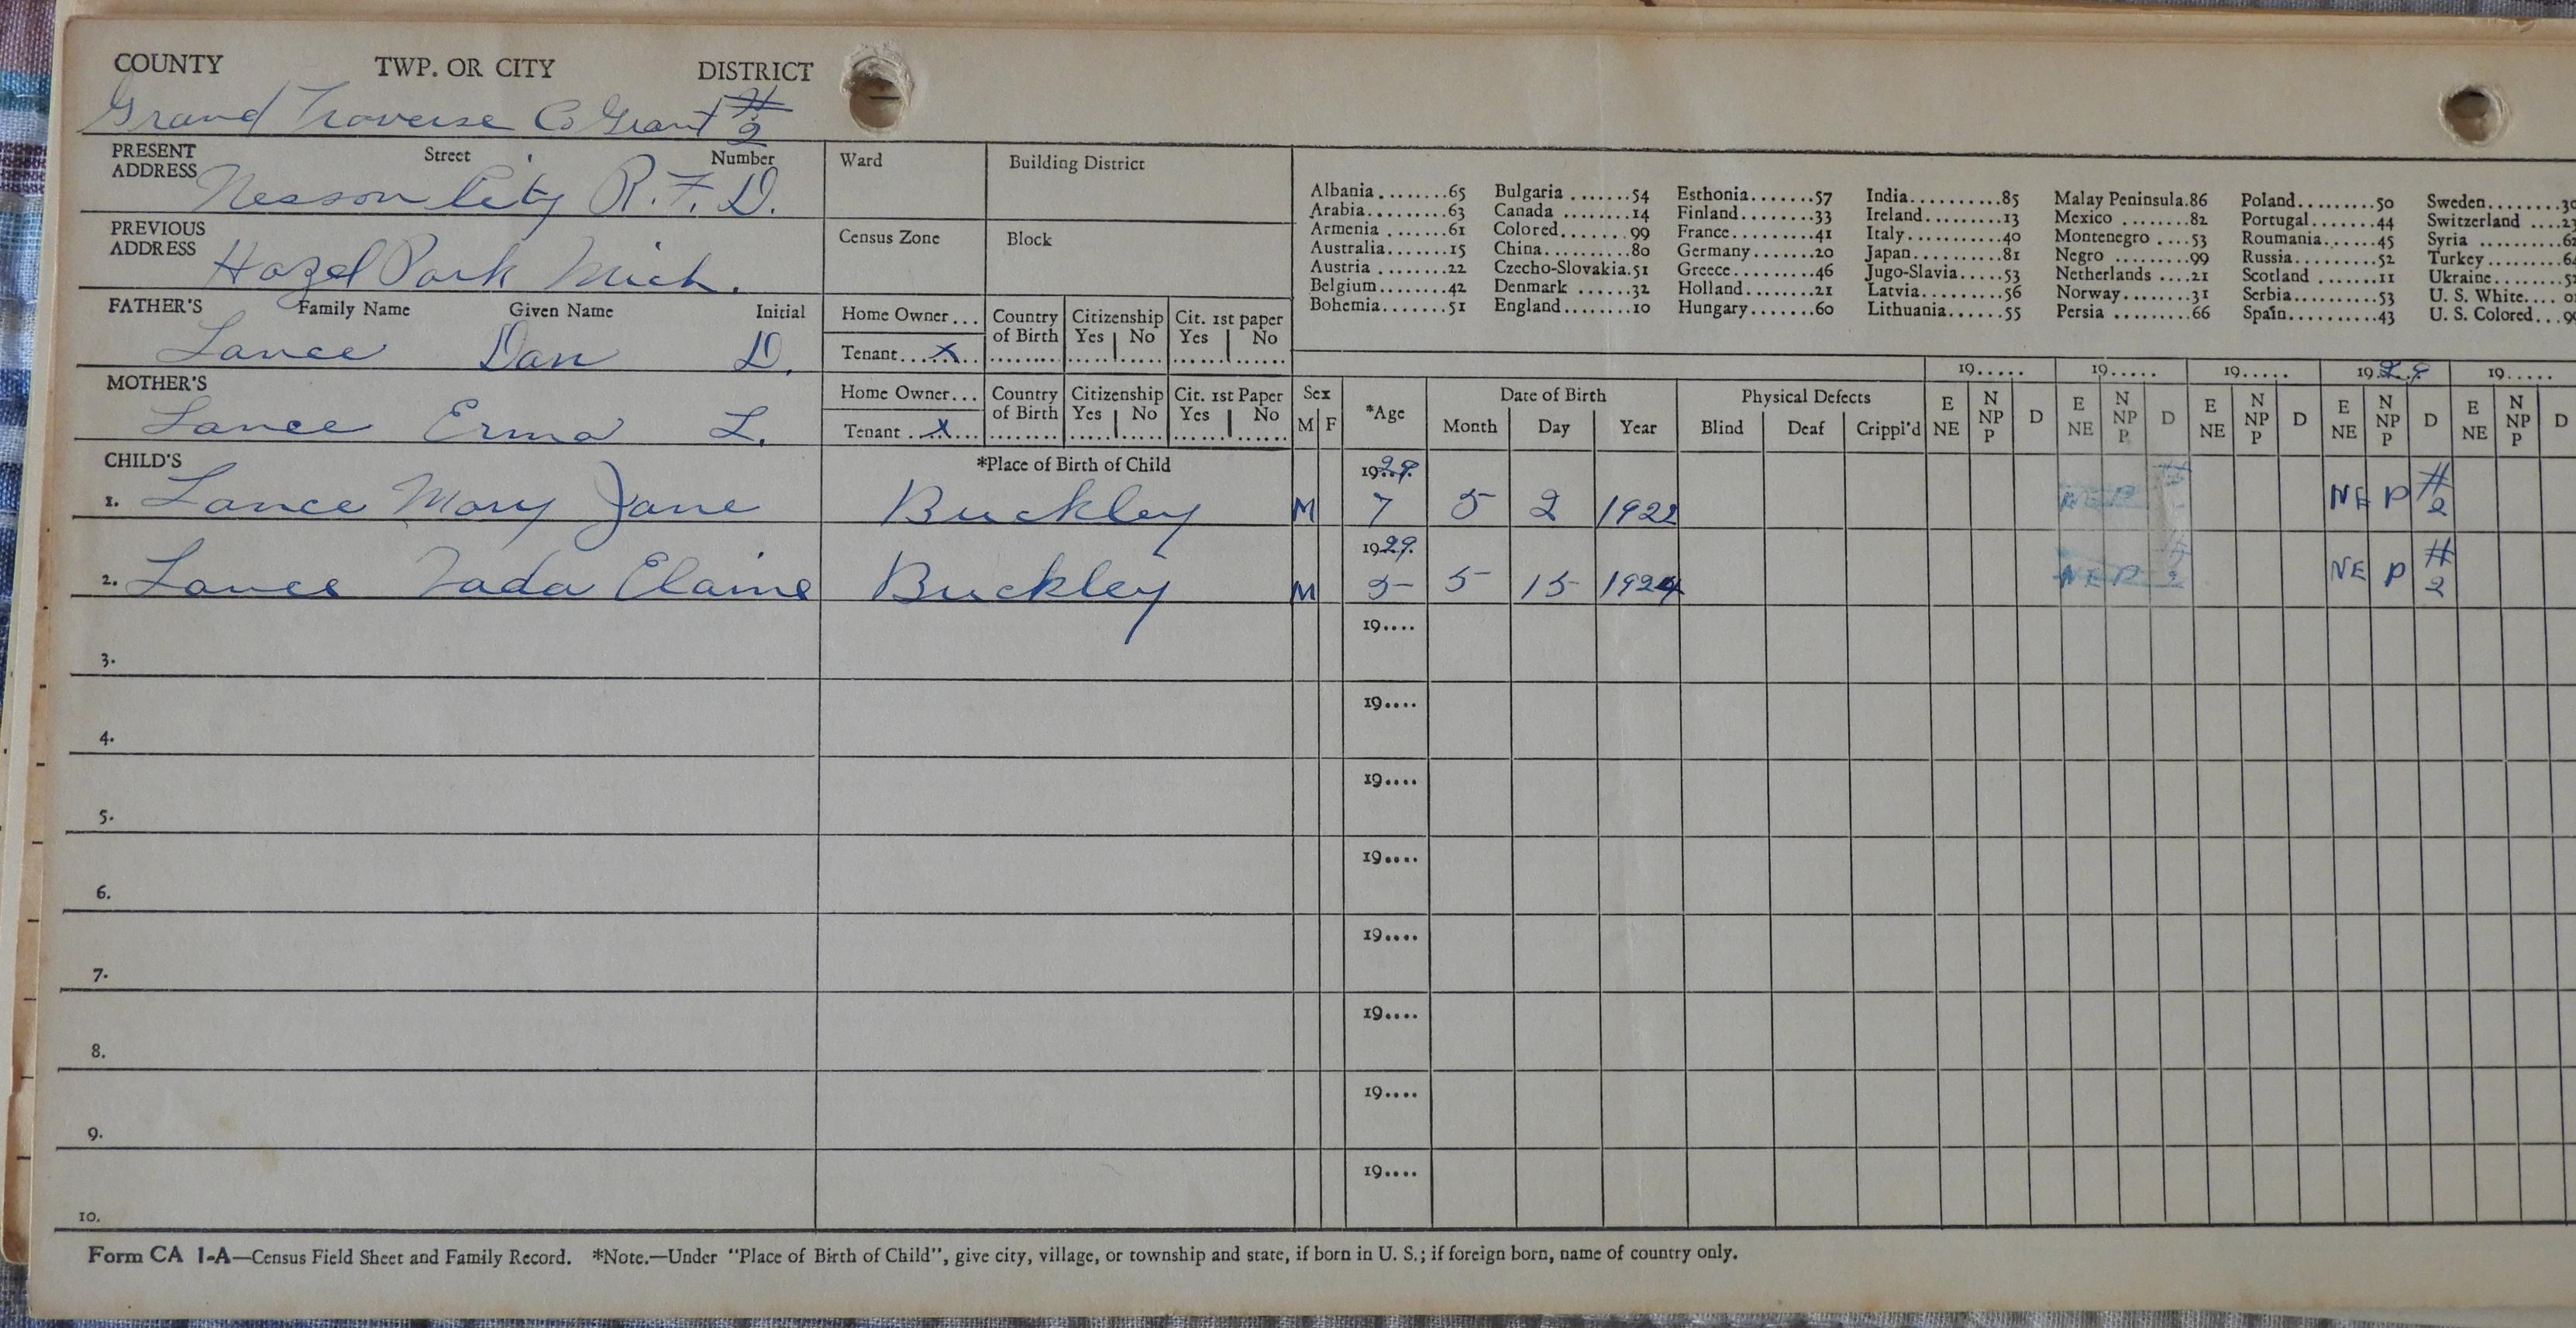 COUNTY TWP. OR CITY DISTRICT
Grand Traverse Co Grant #2
PRESENT ADDRESS Street Number
Nesson City R.F.D.
Ward Building District
PREVIOUS ADDRESS
Hazel Park Mich.
Census Zone Block
Albania........65 Bulgaria.......54 Esthonia.......57 India..........85 Malay Peninsula.86 Poland.........50 Sweden........30
Arabia.........63 Canada ........14 Finland........33 Ireland.........13 Mexico ........82 Portugal.......44 Switzerland ....23
Armenia .......61 Colored........99 France.........41 Italy...........40 Montenegro ....53 Roumania......45 Syria ..........62
Australia.......15 China..........80 Germany.......20 Japan..........81 Negro .........99 Russia.........52 Turkey........64
Austria ........22 Czecho-Slovakia.51 Greece.........46 Jugo-Slavia.....53 Netherlands ....21 Scotland .......11 Ukraine.......52
Belgium........42 Denmark ......32 Holland........21 Latvia..........56 Norway........31 Serbia..........53 U. S. White....01
Bohemia.......51 England........10 Hungary.......60 Lithuania......55 Persia .........66 Spain..........43 U. S. Colored...99
FATHER'S Family Name Given Name Initial
Lance Dan D.
Home Owner... Country of Birth Citizenship Yes No Cit. 1st paper Yes No
Tenant....X....
MOTHER'S
Lance Erma L.
Home Owner... Country of Birth Citizenship Yes No Cit. 1st Paper Yes No
Tenant ..X....
19..... 19..... 19..... 1929 19.....
Sex M F *Age Date of Birth Month Day Year Physical Defects Blind Deaf Crippl'd E NE N NP P D E NE N NP P D E NE N NP P D E NE N NP P D E NE N NP P D
CHILD'S *Place of Birth of Child
1. Lance Mary Jane Buckley M 1929 7 5 2 1922 NE P # NE P #2
2. Lance Zada Elaine Buckley M 1929. 5 5 15 1924 NE P #2 NE P #2
3. 19....
4. 19....
5. 19....
6. 19....
7. 19....
8. 19....
9. 19....
10. 19....
Form CA 1-A—Census Field Sheet and Family Record. *Note.—Under "Place of Birth of Child", give city, village, or township and state, if born in U. S.; if foreign born, name of country only.